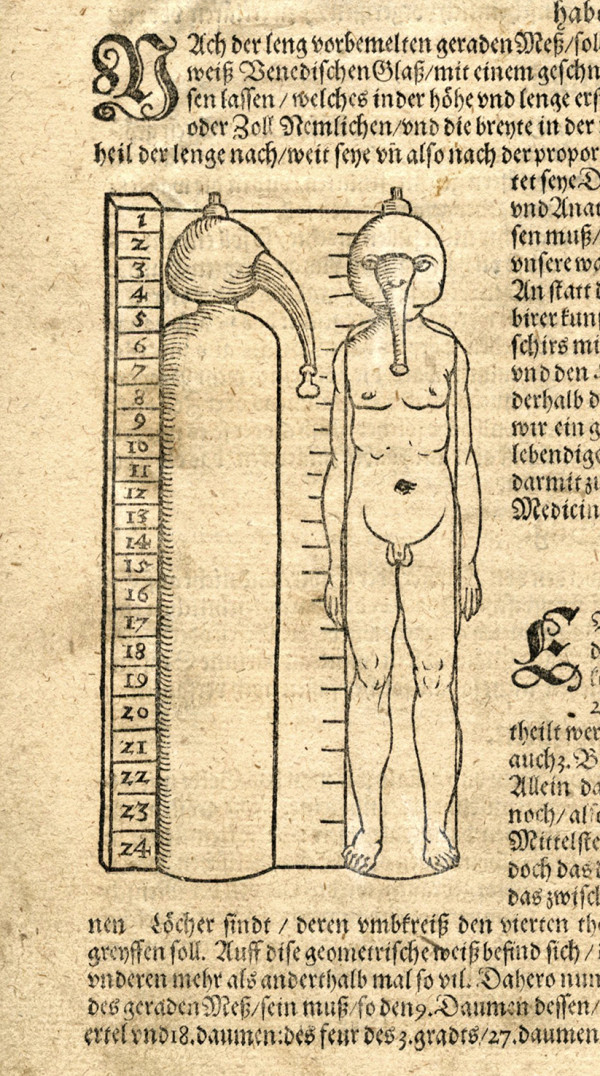 habe
NAch der leng vorbemelten geraden Meß/soll
weiß Venedischen Glaß/mit einem geschn
sen lassen / welches in der höhe vnd lenge erf
oder Zoll Nemlichen/vnd die breyte in der
heil der lenge nach/weit seye vñ also nach der propor
tet seye D
vnd Anat
sen muß/
vnsere wa
An statt d
birer kun
schirs mi
vnd den
derhalb d
wir ein g
lebendige
darmit zu
Medicin
1
2
3
4
5
6
7
8
9
10
11
12
13
14
15
16
17
18
19
20
21
22
23
24
E
2
theilt wer
auch 3. B
Allein da
noch/als
Mittelste
doch das
das zwisch
nen Löcher sindt / deren vmbkreiß den vierten the
greyffen soll. Auff dise geometrische weiß befind sich /
vnderen mehr als anderthalb mal so vil. Dahero nun
des geraden Meß/sein muß/so den 9. Daumen dessen/
ertel vnd 18. daumen: des feur des 3. gradts/27. daumen